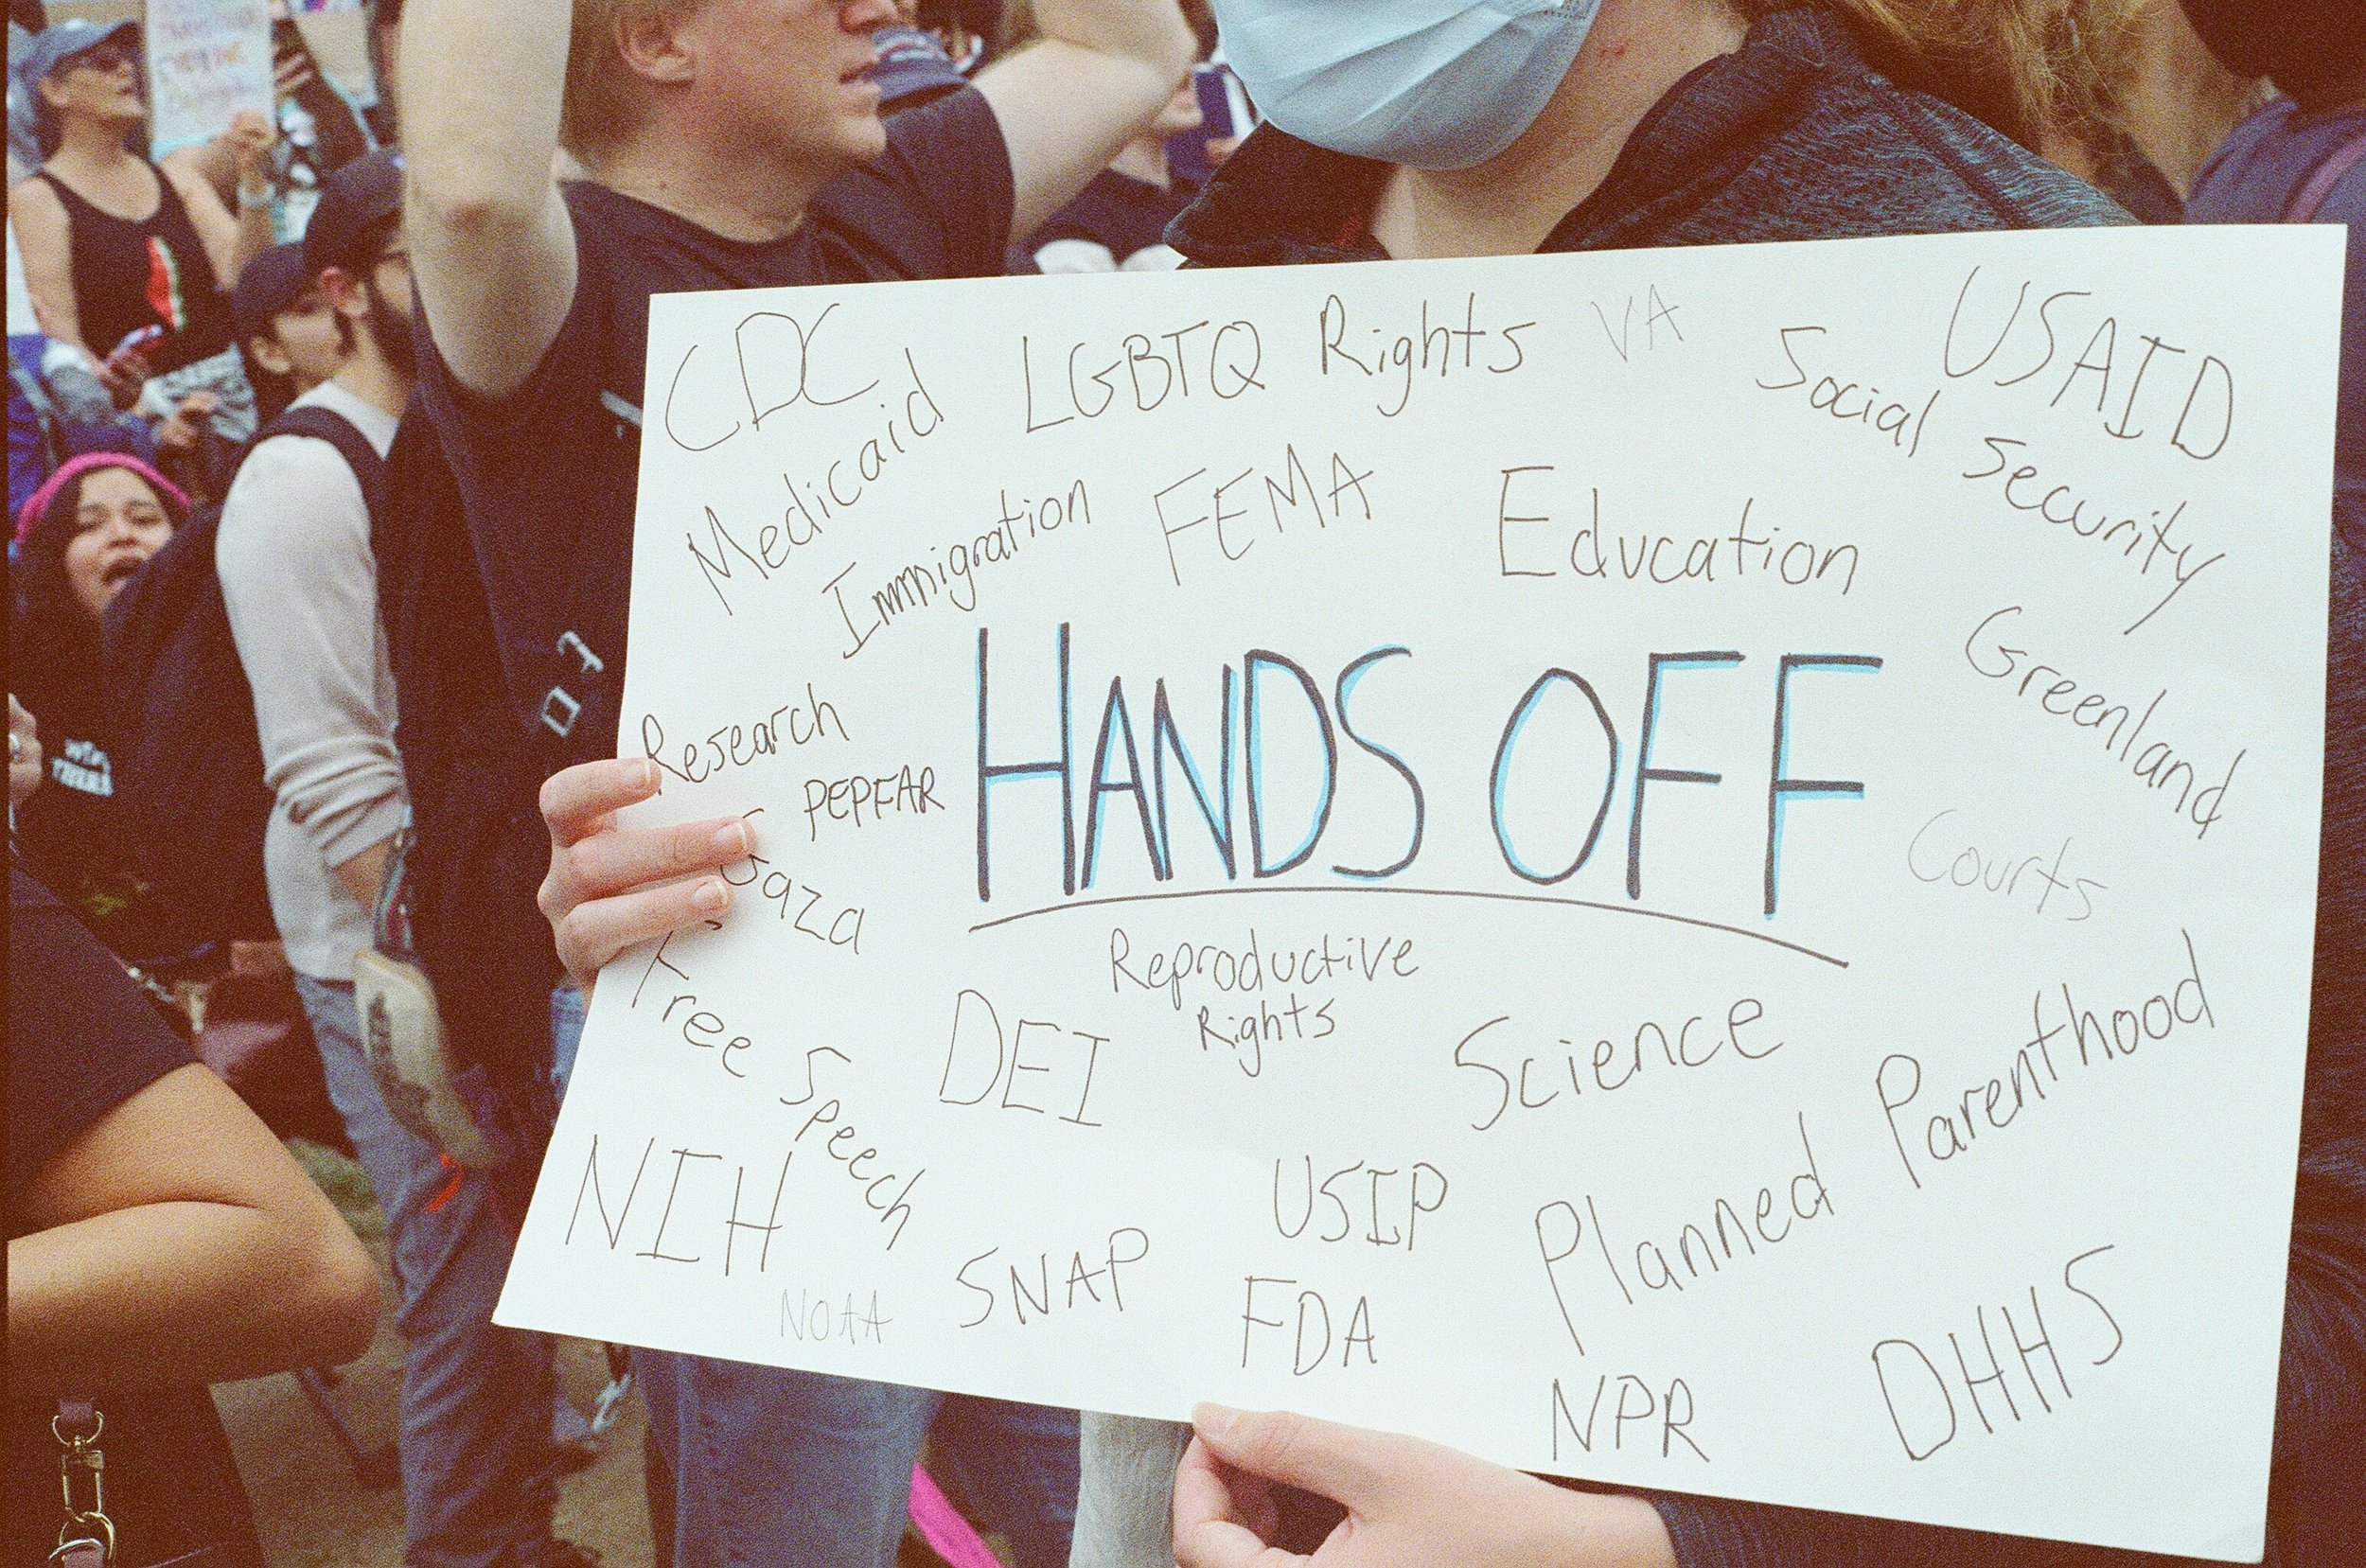 CDC
LGBTQ Rights
VA
USAID
Medicaid
Social Security
Immigration
FEMA
Education
Greenland
HANDS OFF
Research
PEPFAR
Courts
Gaza
Free Speech
Reproductive
Rights
DEI
Science
Planned Parenthood
NIH
USIP
SNAP
NOAA
FDA
DHHS
NPR